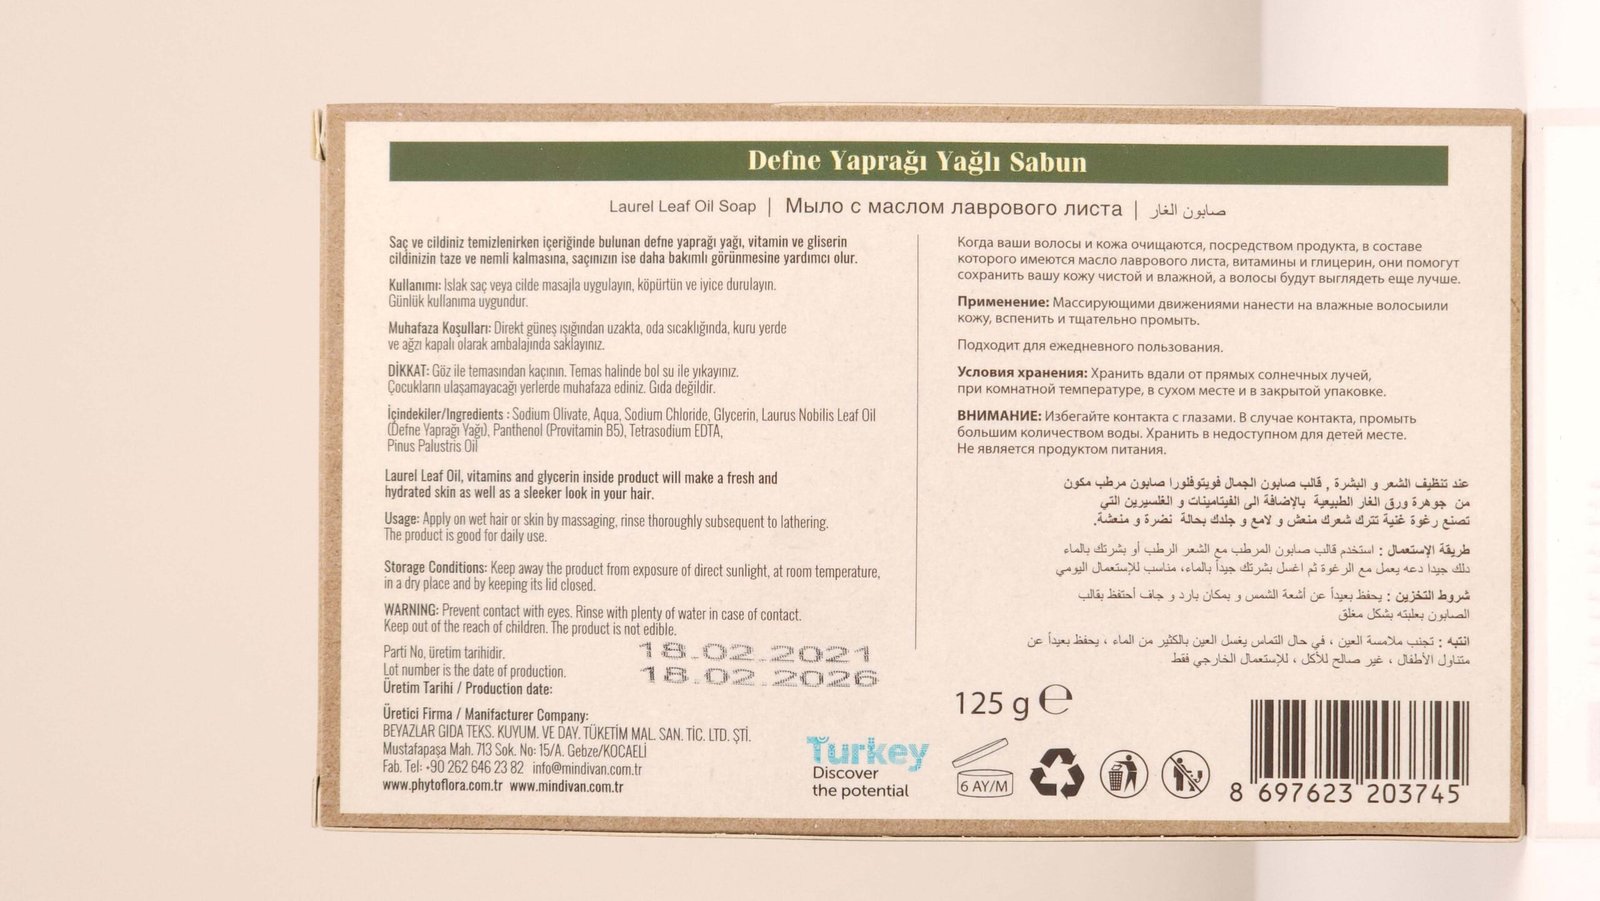 Defne Yaprağı Yağlı Sabun
Laurel Leaf Oil Soap | Мыло с маслом лаврового листа | صابون الغار
Saç ve cildiniz temizlenirken içeriğinde bulunan defne yaprağı yağı, vitamin ve gliserin
cildinizin taze ve nemli kalmasına, saçınızın ise daha bakımlı görünmesine yardımcı olur.
Kullanımı: Islak saç veya cilde masajla uygulayın, köpürtün ve iyice durulayın.
Günlük kullanıma uygundur.
Muhafaza Koşulları: Direkt güneş ışığından uzakta, oda sıcaklığında, kuru yerde
ve ağzı kapalı olarak ambalajında saklayınız.
DİKKAT: Göz ile temasından kaçının. Temas halinde bol su ile yıkayınız.
Çocukların ulaşamayacağı yerlerde muhafaza ediniz. Gıda değildir.
İçindekiler/Ingredients : Sodium Olivate, Aqua, Sodium Chloride, Glycerin, Laurus Nobilis Leaf Oil
(Defne Yaprağı Yağı), Panthenol (Provitamin B5), Tetrasodium EDTA,
Pinus Palustris Oil
Laurel Leaf Oil, vitamins and glycerin inside product will make a fresh and
hydrated skin as well as a sleeker look in your hair.
Usage: Apply on wet hair or skin by massaging, rinse thoroughly subsequent to lathering.
The product is good for daily use.
Storage Conditions: Keep away the product from exposure of direct sunlight, at room temperature,
in a dry place and by keeping its lid closed.
WARNING: Prevent contact with eyes. Rinse with plenty of water in case of contact.
Keep out of the reach of children. The product is not edible.
Parti No, üretim tarihidir.
Lot number is the date of production.
Üretim Tarihi / Production date:
18.02.2021
18.02.2026
Üretici Firma / Manifacturer Company:
BEYAZLAR GIDA TEKS. KUYUM. VE DAY. TÜKETİM MAL. SAN. TİC. LTD. ŞTİ.
Mustafapaşa Mah. 713 Sok. No: 15/A. Gebze/KOCAELİ
Fab. Tel: +90 262 646 23 82 info@mindivan.com.tr
www.phytoflora.com.tr www.mindivan.com.tr
Turkey
Discover
the potential
Когда ваши волосы и кожа очищаются, посредством продукта, в составе
которого имеются масло лаврового листа, витамины и глицерин, они помогут
сохранить вашу кожу чистой и влажной, а волосы будут выглядеть еще лучше.
Применение: Массирующими движениями нанести на влажные волосыили
кожу, вспенить и тщательно промыть.
Подходит для ежедневного пользования.
Условия хранения: Хранить вдали от прямых солнечных лучей,
при комнатной температуре, в сухом месте и в закрытой упаковке.
ВНИМАНИЕ: Избегайте контакта с глазами. В случае контакта, промыть
большим количеством воды. Хранить в недоступном для детей месте.
Не является продуктом питания.
عند تنظيف الشعر و البشرة , قالب صابون الجمال فويتوفلورا صابون مرطب مكون
من جوهرة ورق الغار الطبيعية بالإضافة الى الفيتامينات و الغلسيرين التي
تصنع رغوة غنية تترك شعرك منعش و لامع و جلدك بحالة نضرة و منعشة.
طريقة الإستعمال : استخدم قالب صابون المرطب مع الشعر الرطب أو بشرتك بالماء
دلك جيدا دعه يعمل مع الرغوة ثم اغسل بشرتك جيداً بالماء، مناسب للإستعمال اليومي
شروط التخزين : يحفظ بعيداً عن أشعة الشمس و بمكان بارد و جاف أحتفظ بقالب
الصابون بعلبته بشكل مغلق
انتبه : تجنب ملامسة العين ، في حال التماس يغسل العين بالكثير من الماء ، يحفظ بعيداً عن
متناول الأطفال ، غير صالح للأكل ، للإستعمال الخارجي فقط
125 g ℮
6 AY/M
8 697623 203745